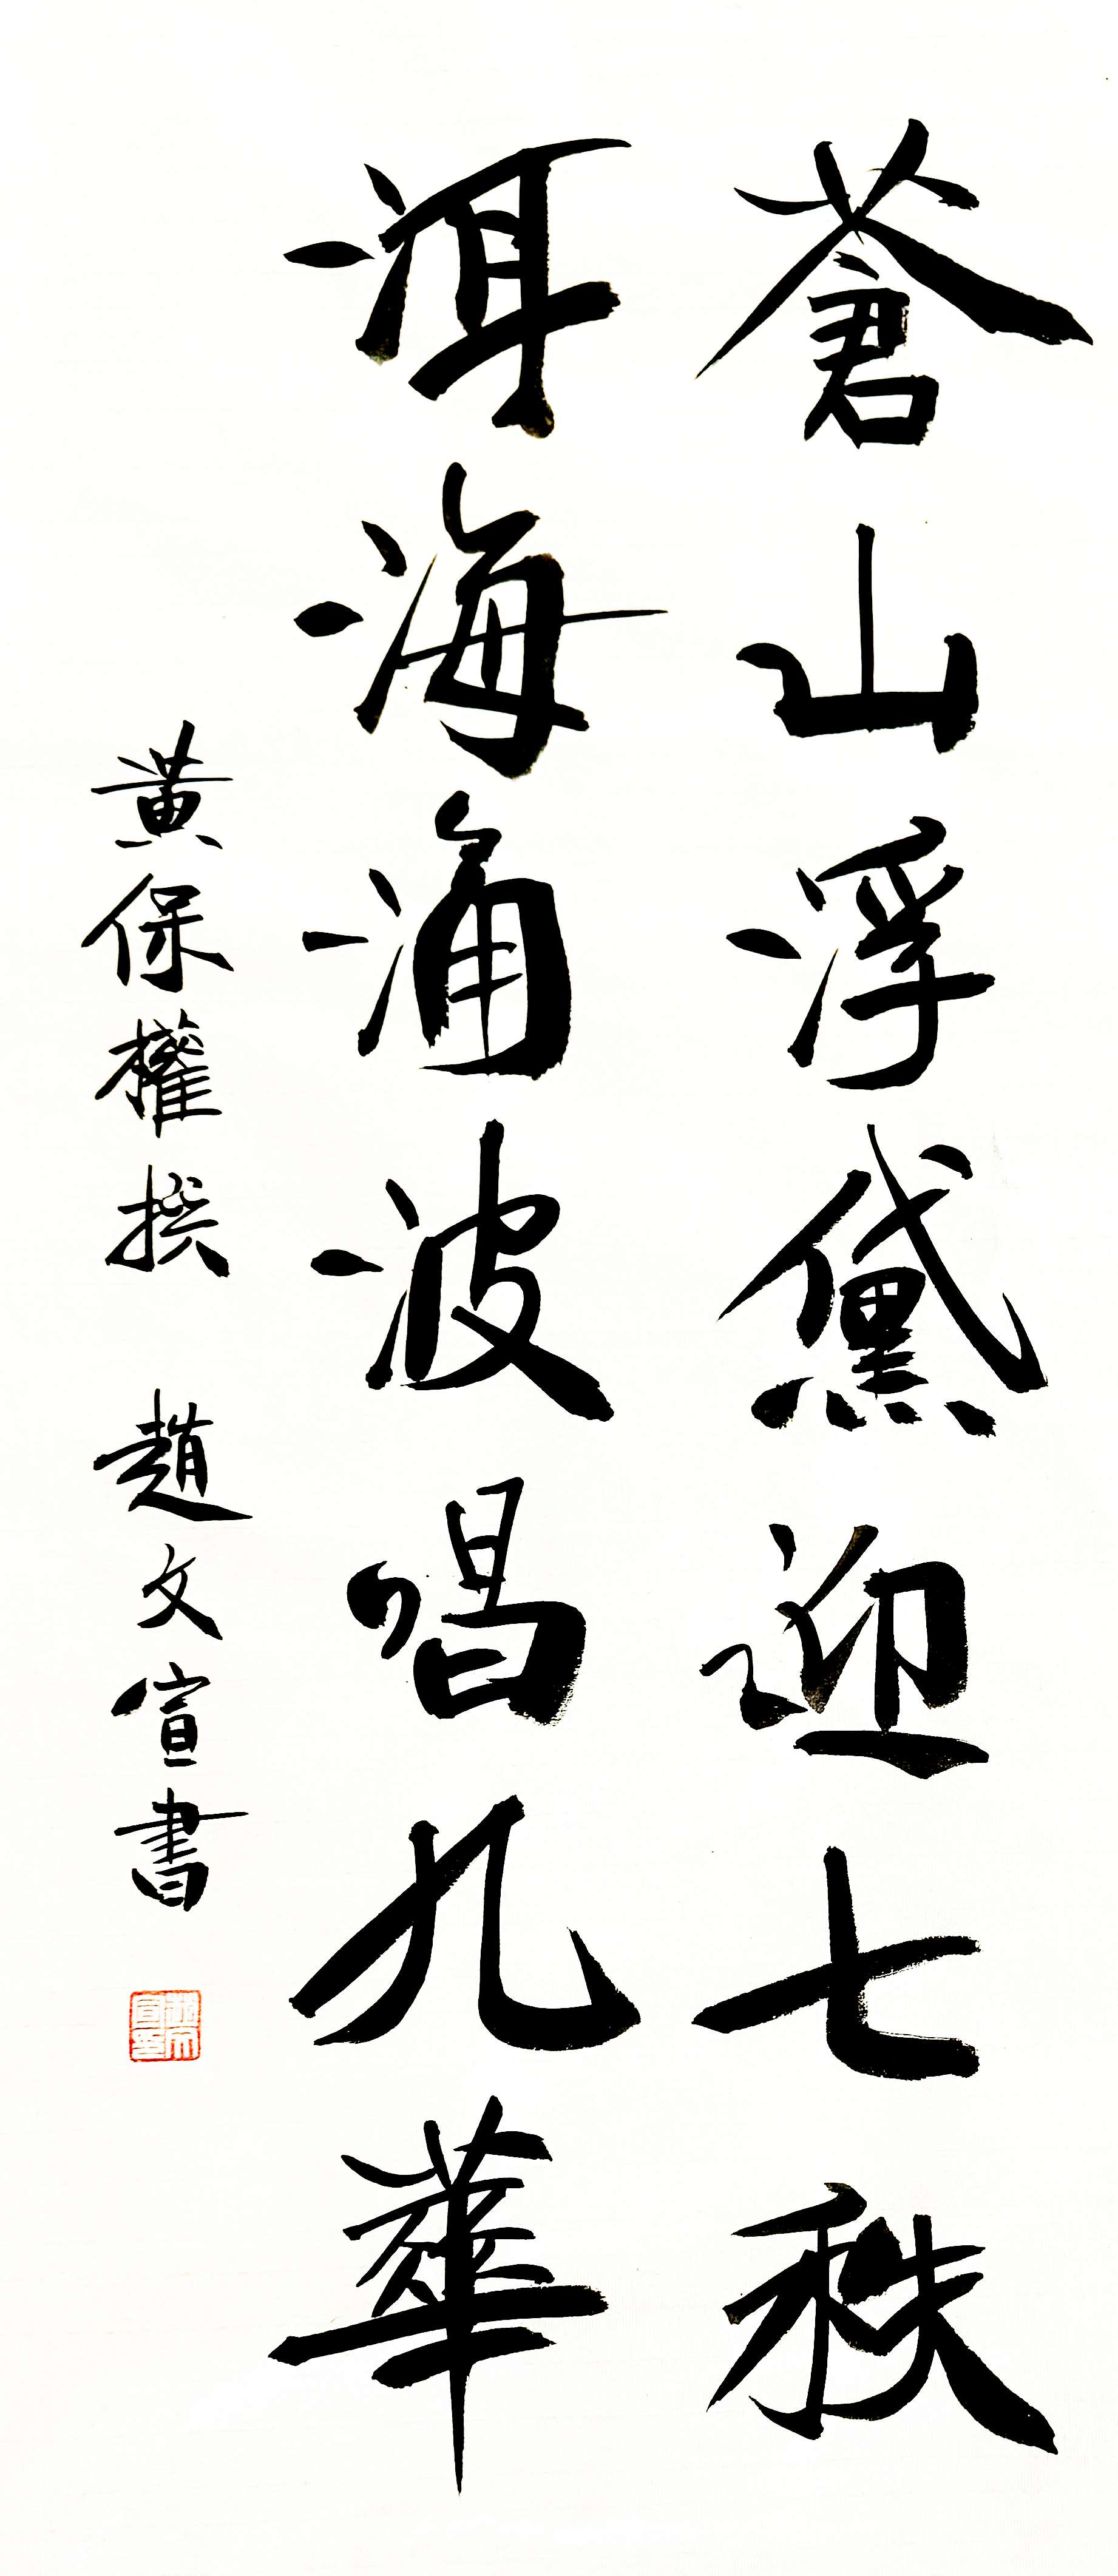 蒼山浮黛迎七秩
洱海涌波唱九華
黃保權撰 趙文宣書